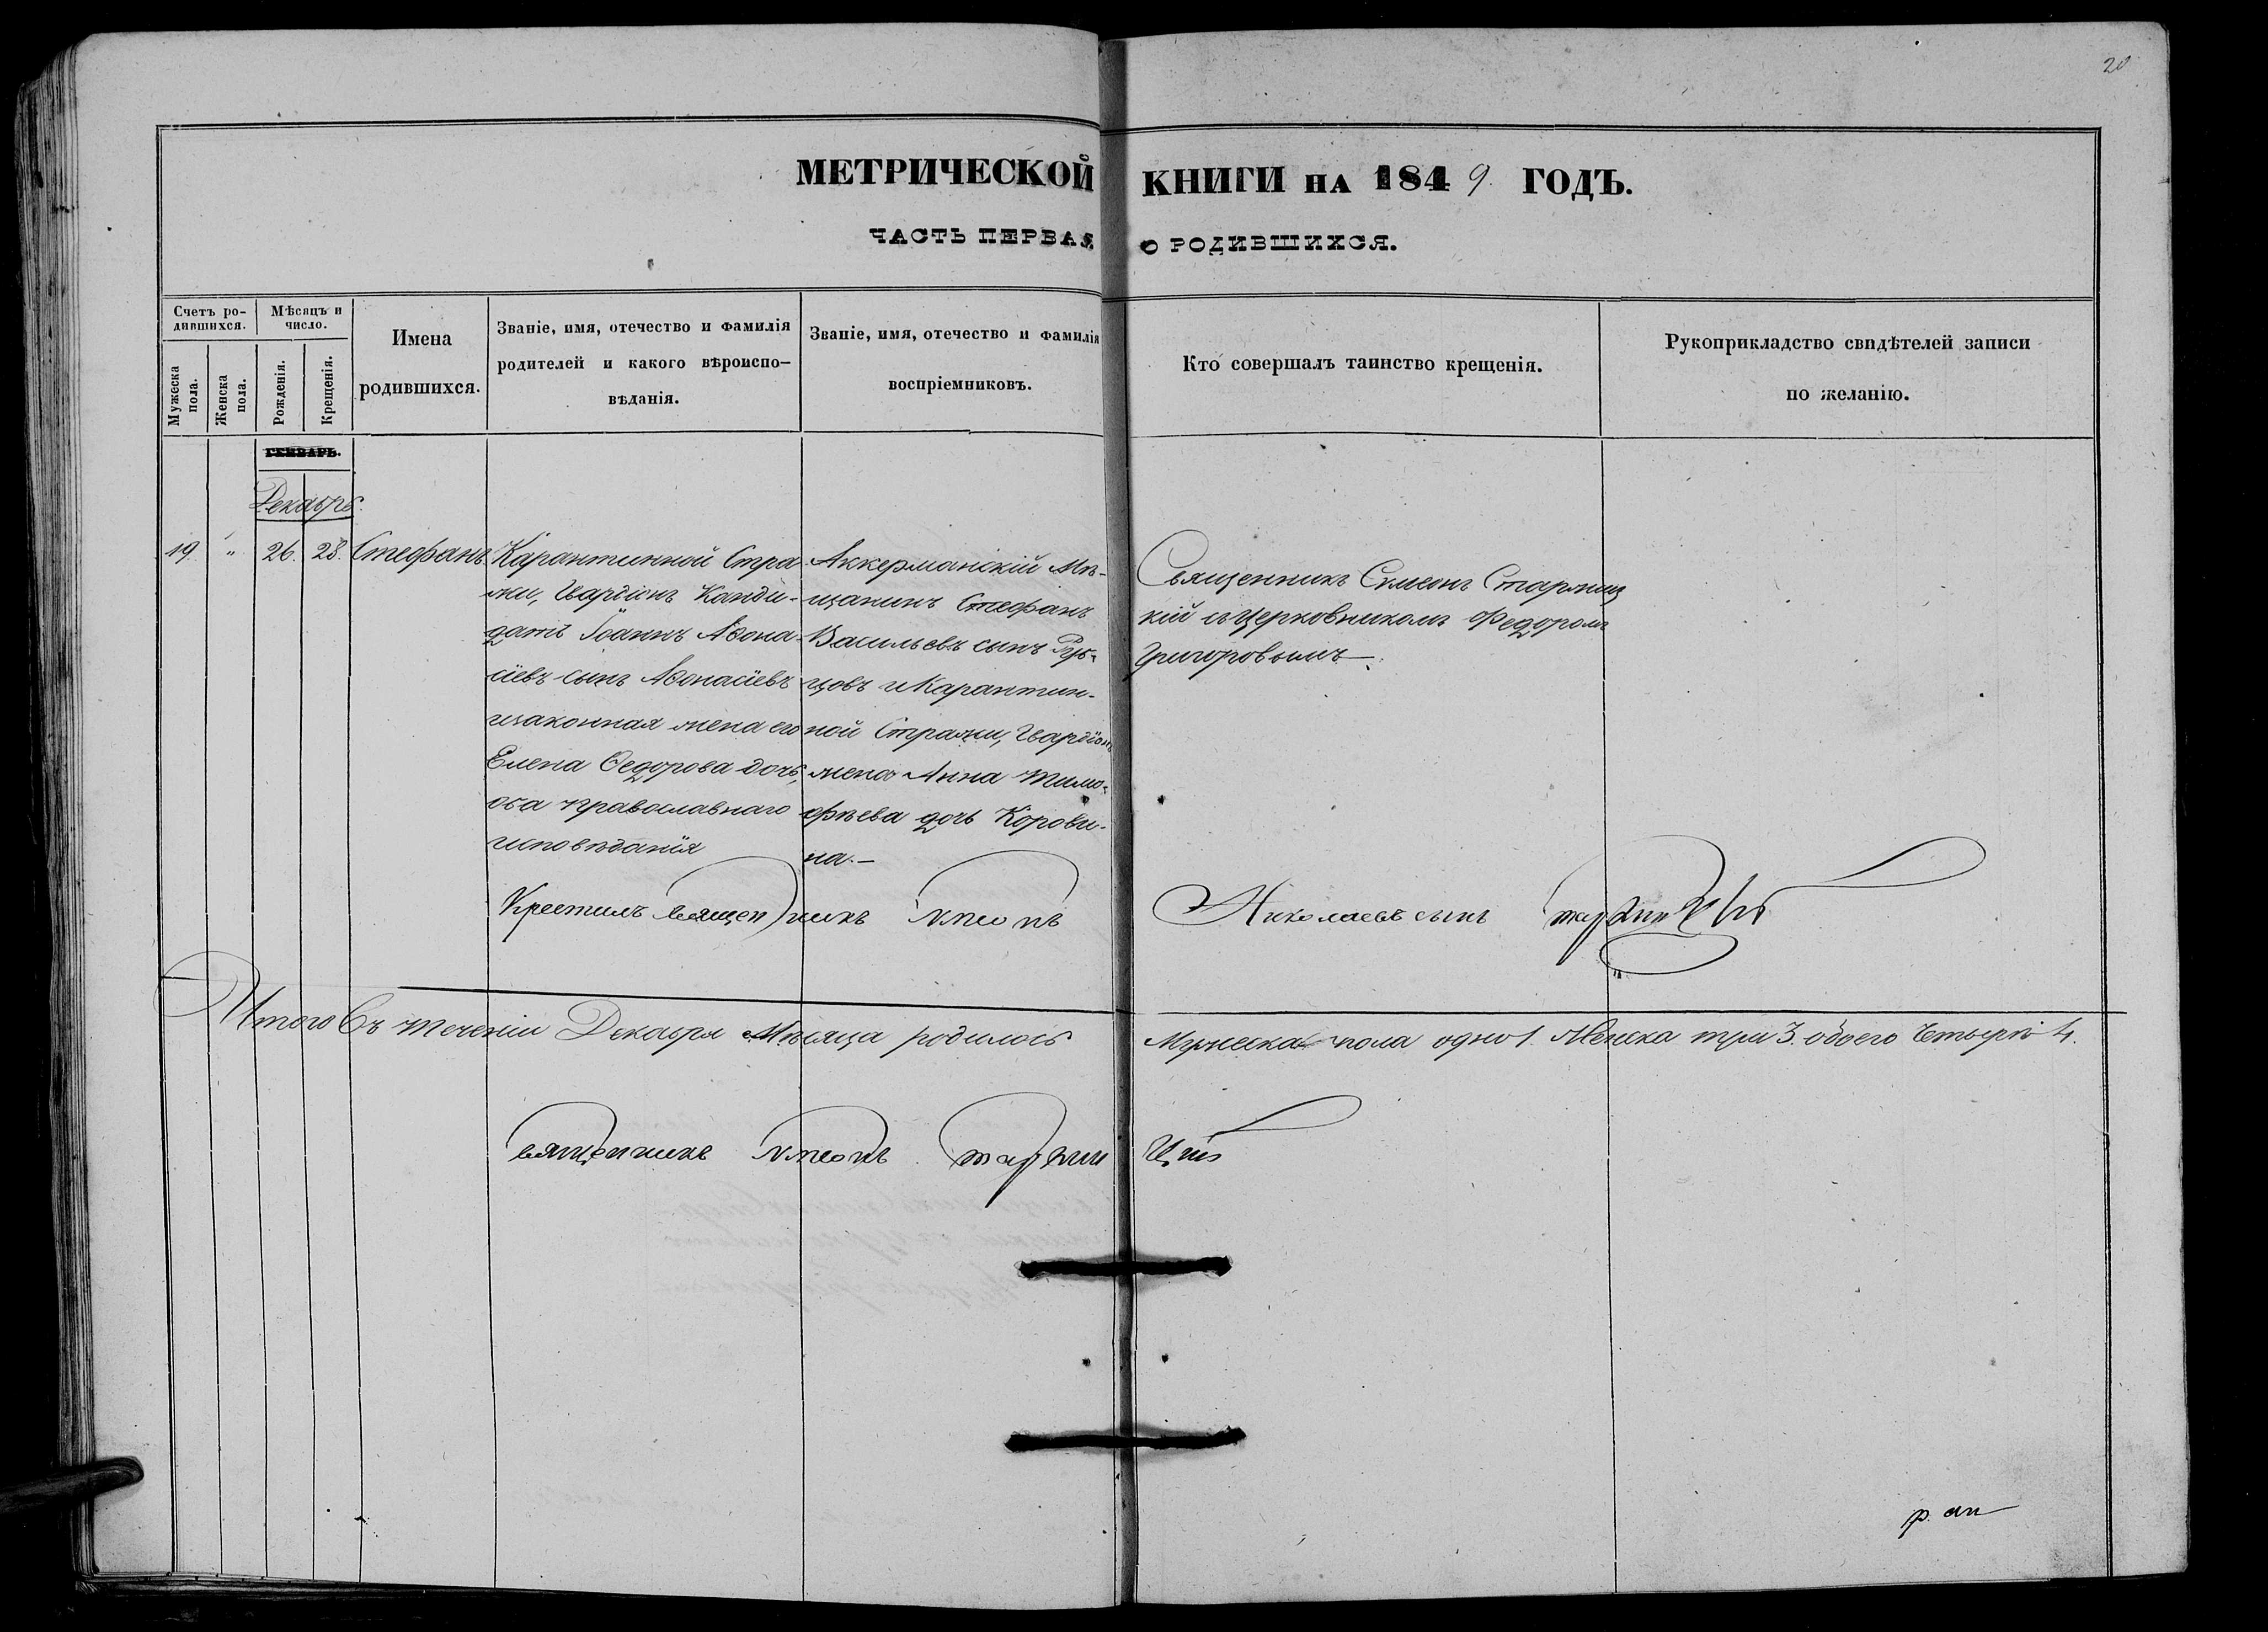 20
МЕТРИЧЕСКОЙ КНИГИ НА 1849. ГОДЪ.
ЧАСТЬ ПЕРВАЯ, О РОДИВШИХСЯ.
Счетъ ро-
дившихся.
Мужеска
пола.
Женска
пола.
Мѣсяцъ и
число.
Рожденія.
Крещенія.
Имена
родившихся.
Званіе, имя, отечество и фамилія
родителей и какого вѣроиспо-
вѣданія.
Званіе, имя, отечество и фамилія
воспріемниковъ.
Кто совершалъ таинство крещенія.
Рукоприкладство свидѣтелей записи
по желанію.
ГЕНВАРЬ.
Декабрь.
19. " 26. 28. Стефанъ.
Карантинной Стра-
жи, Гвардіонъ Канди-
датъ Іоаннъ Аѳона-
сіевъ сынъ Аѳонасіевъ
изаконная жена его
Елена Ѳедорова дочь,
оба православнаго
исповѣданія
Аккерманскій Мѣ-
щанинъ Стефанъ
Васильевъ сынъ Руб-
цовъ иКарантин-
ной Стражи, Гвардіона
жена Анна Тимо-
фѣева дочь Корови-
на.—
Священникъ Симеонъ Старжиц
кій съ церковникомъ Федоромъ
Григоровымъ
Крестилъ Священникъ Симеонъ Николаевъ сынъ Старжицкій
Итого Въ теченіи Декабря Мѣсяца родилось Мужеска пола одно 1. Женска три 3. обоего Четырѣ 4.
Священникъ Симеонъ Старжицкій